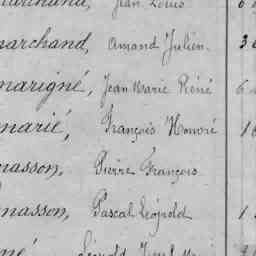 Jean Louis
marchand, Amand Julien
marigné, Jean Marie Réné
marié, François Honoré
masson, Pierre François
masson, Pascal Léopold
Léopold